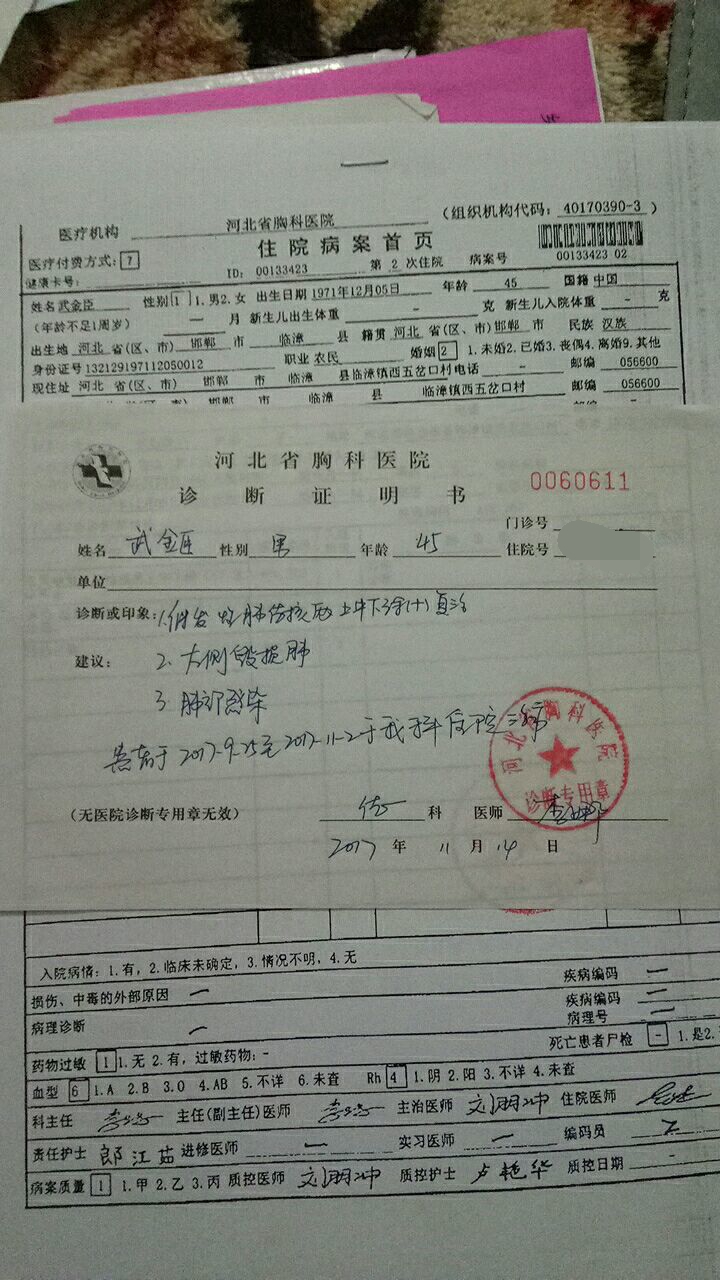 医疗机构 河北省胸科医院 (组织机构代码: 40170390-3)
住院病案首页
医疗付费方式: 7
00133423 02
健康卡号: ID: 00133423 第 2 次住院 病案号
姓名 武金臣 性别 1 1.男2.女 出生日期 1971年12月05日 年龄 45 国籍 中国
(年龄不足1周岁) — 月 新生儿出生体重 - 克 新生儿入院体重 - 克
出生地 河北 省(区、市) 邯郸 市 临漳 县 籍贯 河北 省(区、市) 邯郸 市 民族 汉族
身份证号 132129197112050012 职业 农民 婚姻 2 1.未婚2.已婚3.丧偶4.离婚9.其他
现住址 河北 省(区、市) 邯郸 市 临漳 县临漳镇西五岔口村 电话 - 邮编 056600
邯郸 市 临漳 县 临漳镇西五岔口村 邮编 056600
河北省胸科医院
诊断证明书
0060611
门诊号
姓名 武金臣 性别 男 年龄 45 住院号
单位
诊断或印象: 1. 继发性肺结核 双上中下涂(+)复治
建议: 2. 左侧毁损肺
3. 肺部感染
患者于2017-9-25至2017-11-2于我科住院治疗
河北省胸科医院
诊断专用章
(无医院诊断专用章无效) 科 医师
2017 年 11 月 14 日
入院病情: 1.有, 2.临床未确定, 3.情况不明, 4.无
损伤、中毒的外部原因 — 疾病编码 —
病理诊断 — 疾病编码 —
病理号 —
药物过敏 1 1.无 2.有, 过敏药物: - 死亡患者尸检 - 1.是2.
血型 6 1.A 2.B 3.O 4.AB 5.不详 6.未查 Rh 4 1.阴 2.阳 3.不详 4.未查
科主任 主任(副主任)医师 主治医师 刘朋冲 住院医师
责任护士 郎江茹 进修医师 — 实习医师 — 编码员
病案质量 1 1.甲 2.乙 3.丙 质控医师 刘朋冲 质控护士 卢艳华 质控日期 -